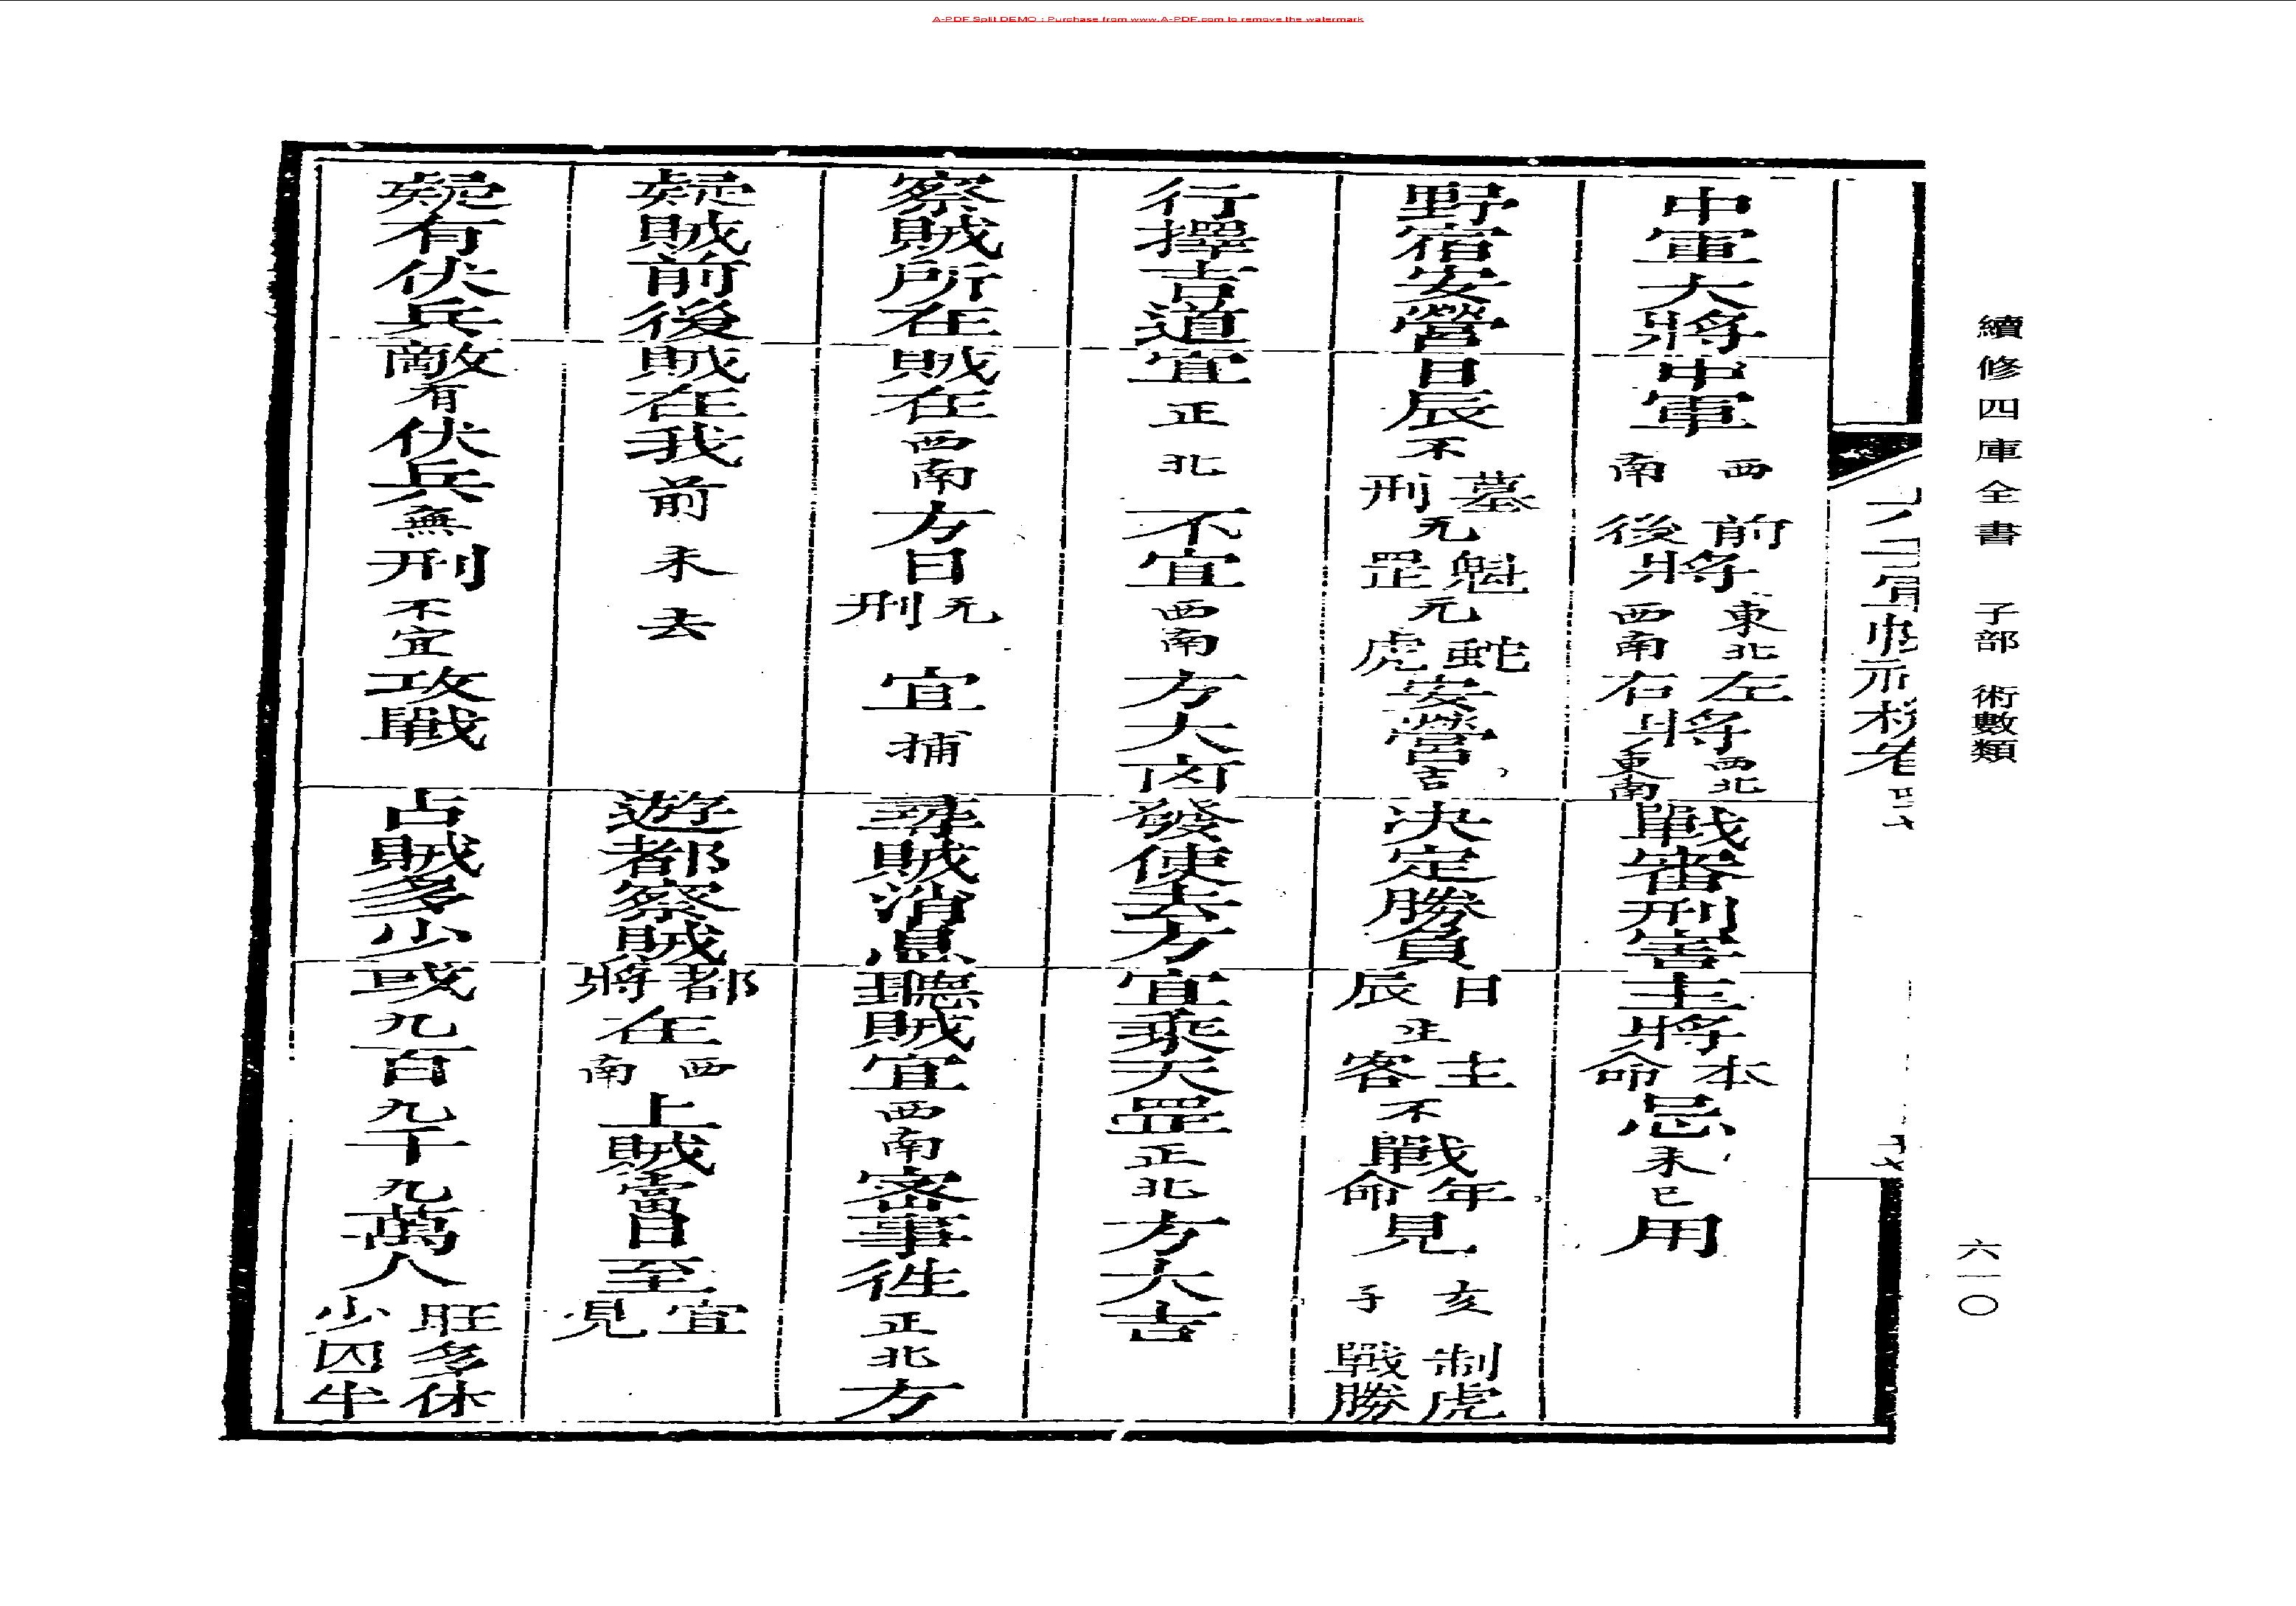 A-PDF Split DEMO : Purchase from www.A-PDF.com to remove the watermark
續修四庫全書 子部 術數類
六一〇
中軍大將中軍西南前後將東北西南左右將西北東南戰審刑害主將本命忌未巳用
野宿安營日辰不墓刑无魁罡元蛇虎安營吉決定勝負日辰正主客不戰年命見亥子制虎戰勝
行擇吉道宜正北不宜西南方大凶發使去方宜乘天罡正北方大吉
察賊所在賊在西南方日无刑宜捕尋賊消息聽賊宜西南密事往正北方
疑賊前後賊在我前未去遊都察賊都將在西南上賊當日至宜見
疑有伏兵敵有伏兵無刑不宜攻戰占賊多少或九百九千九萬人旺多休少囚半